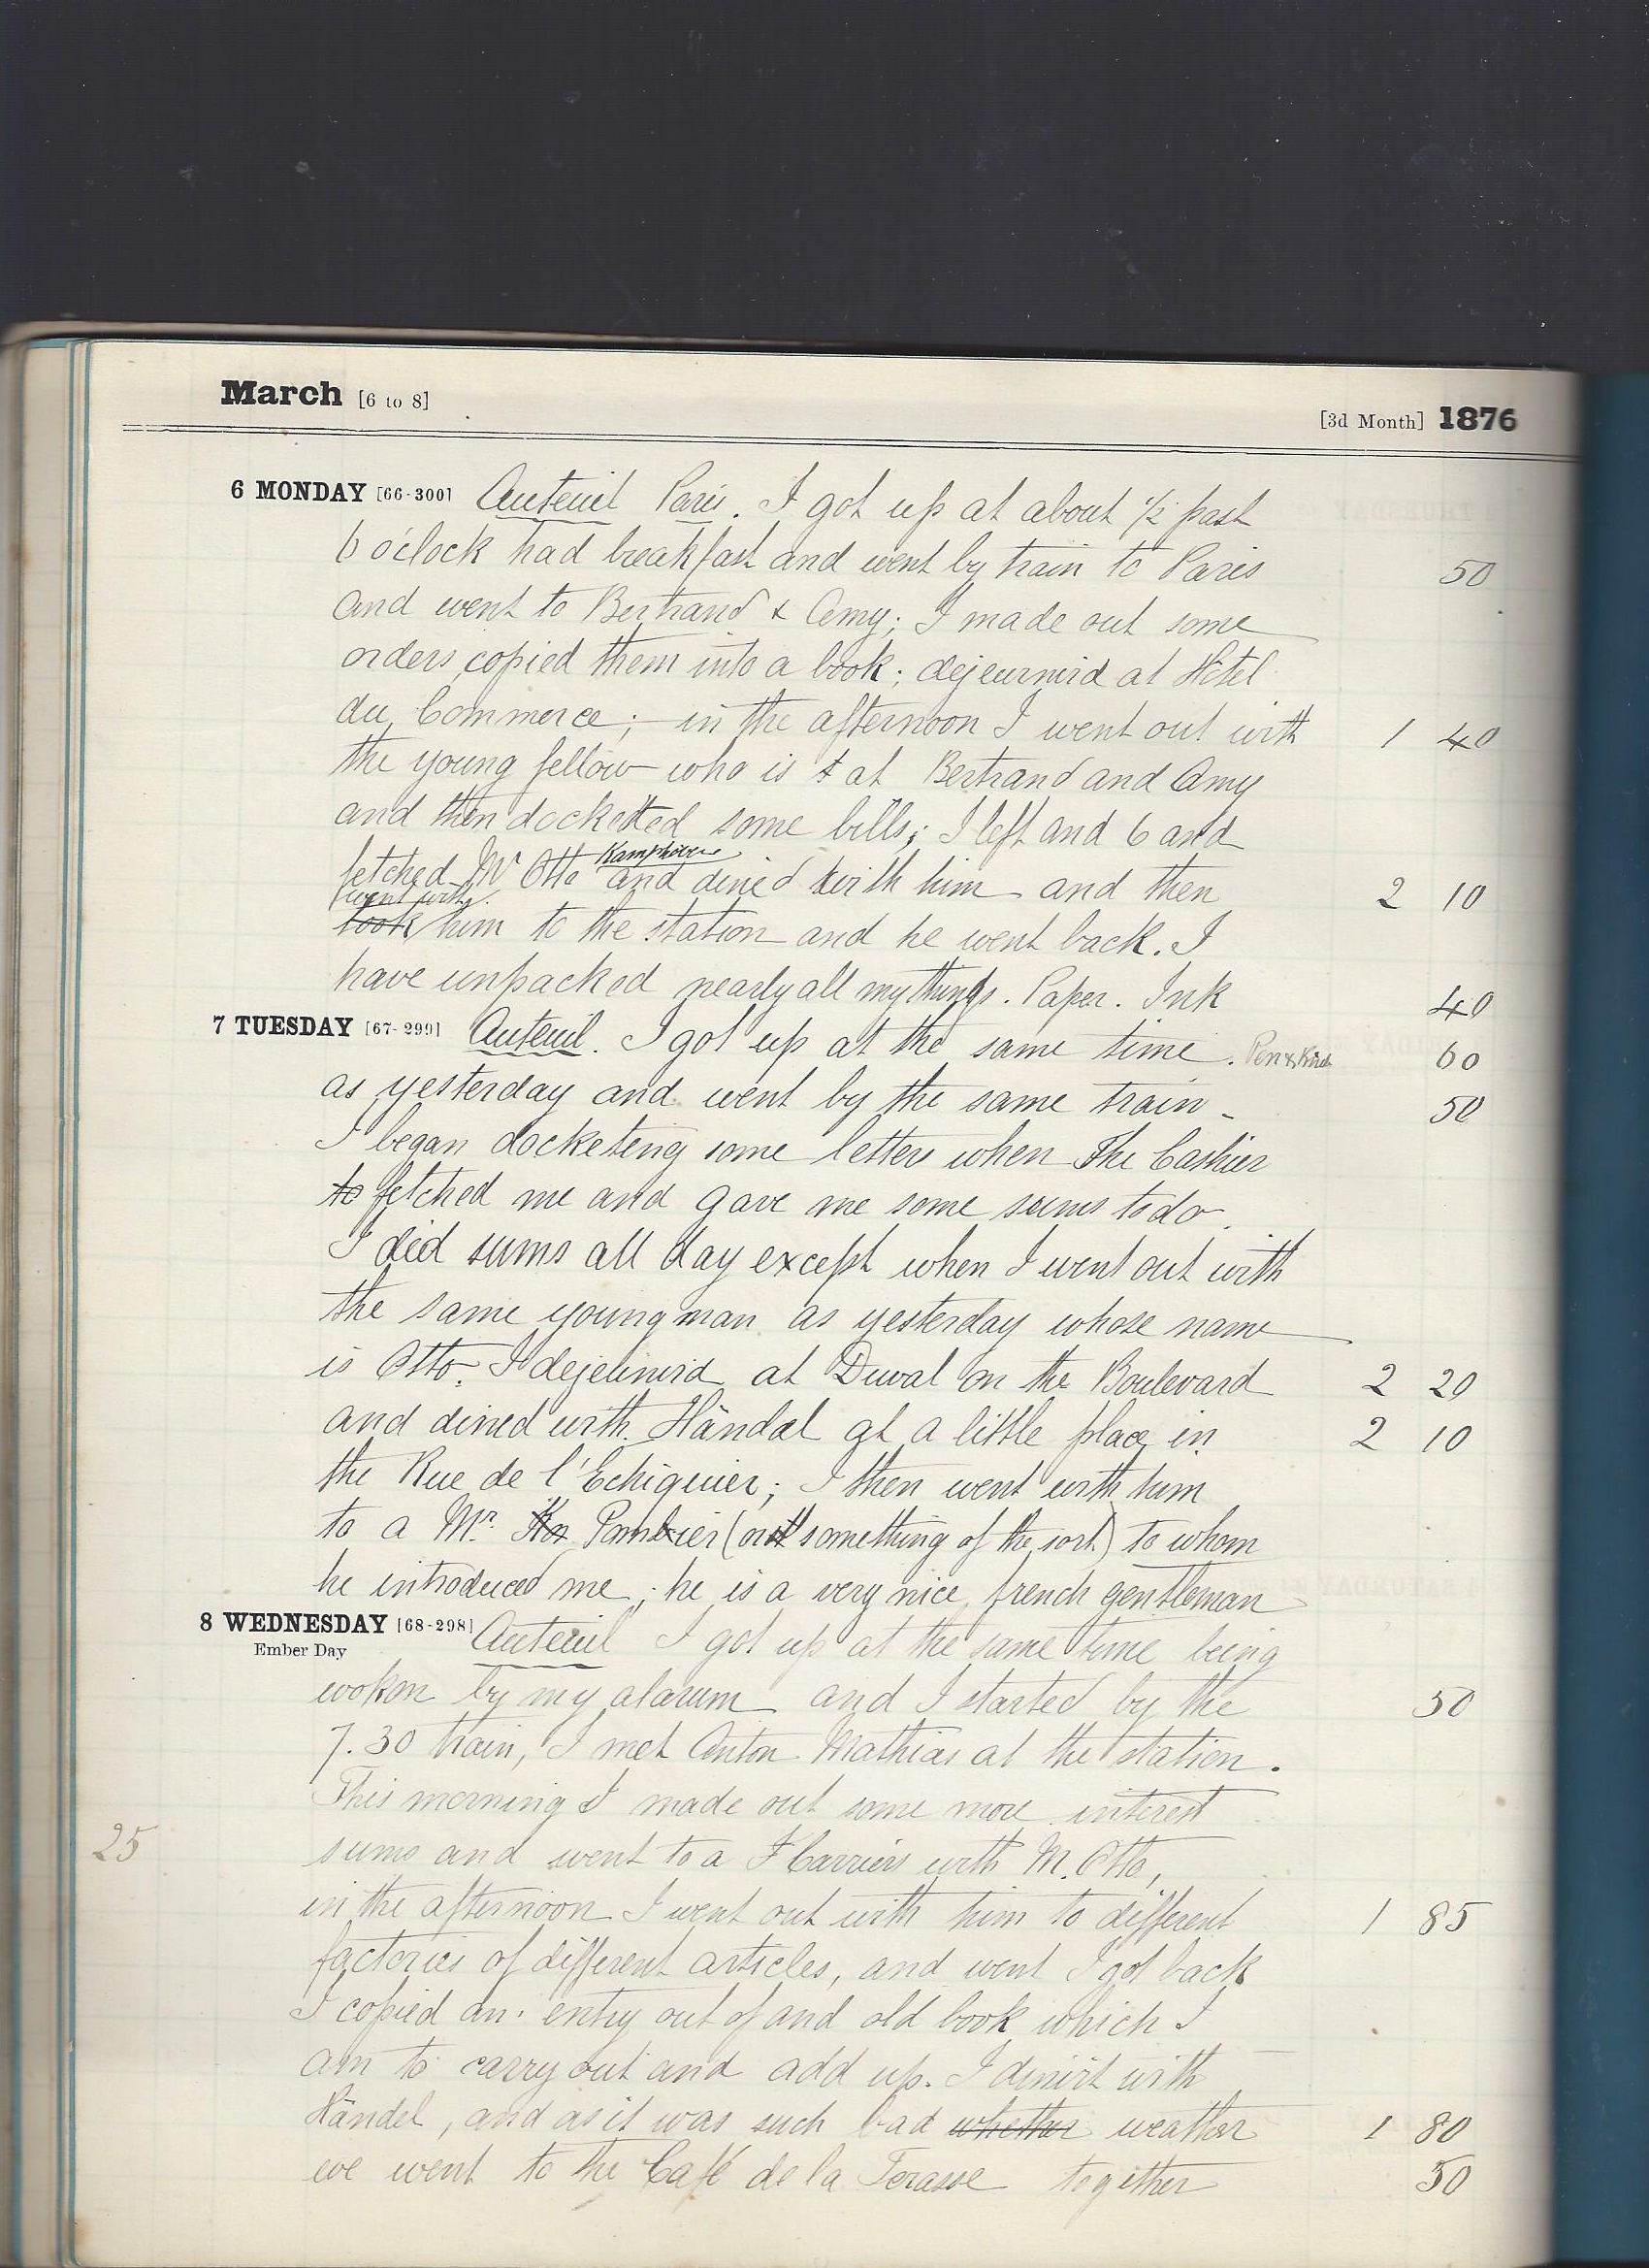 March [6 to 8]
[3d Month] 1876
6 MONDAY [66-300] Auteuil Paris. I got up at about 1/2 past
6 o'clock had breakfast and went by train to Paris 50
and went to Bertrand & Amy; I made out some
orders, copied them into a book; dejeurnird at Hôtel
du Commerce; in the afternoon I went out with 1 40
the young fellow who is at Bertrand and Amy
and then docketted some bills; I left and 6 and
fetched Mr Otto and dined with him and then 2 10
went with
took him to the station and he went back. I
have unpacked nearly all my things. Paper. Ink 40
7 TUESDAY [67-299] Auteuil. I got up at the same time. Pen & 60
as yesterday and went by the same train 50
I began docketing some letters when The Cashier
to fetched me and gave me some sums to do.
I did sums all day except when I went out with
the same young man as yesterday whose name
is Otto. I dejeunird at Duval on the Boulevard 2 20
and dined with Händel at a little place in 2 10
the Rue de l'Echiquier; I then went with him
to a Mr. (or something of the sort) to whom
he introduced me; he is a very nice french gentleman
8 WEDNESDAY [68-298] Auteuil I got up at the same time being
Ember Day
woken by my alarum and I started by the 50
7.30 train, I met Anton Mathias at the station.
This morning I made out some more interest
25 sums and went to a Carriers with M. Otto,
in the afternoon I went out with him to different 1 85
factories of different articles, and went I got back
I copied an entry out of and old book which I
am to carry out and add up. I with
Händel, and as it was such bad whether weather 1 80
we went to the Café de la Terasse together 50